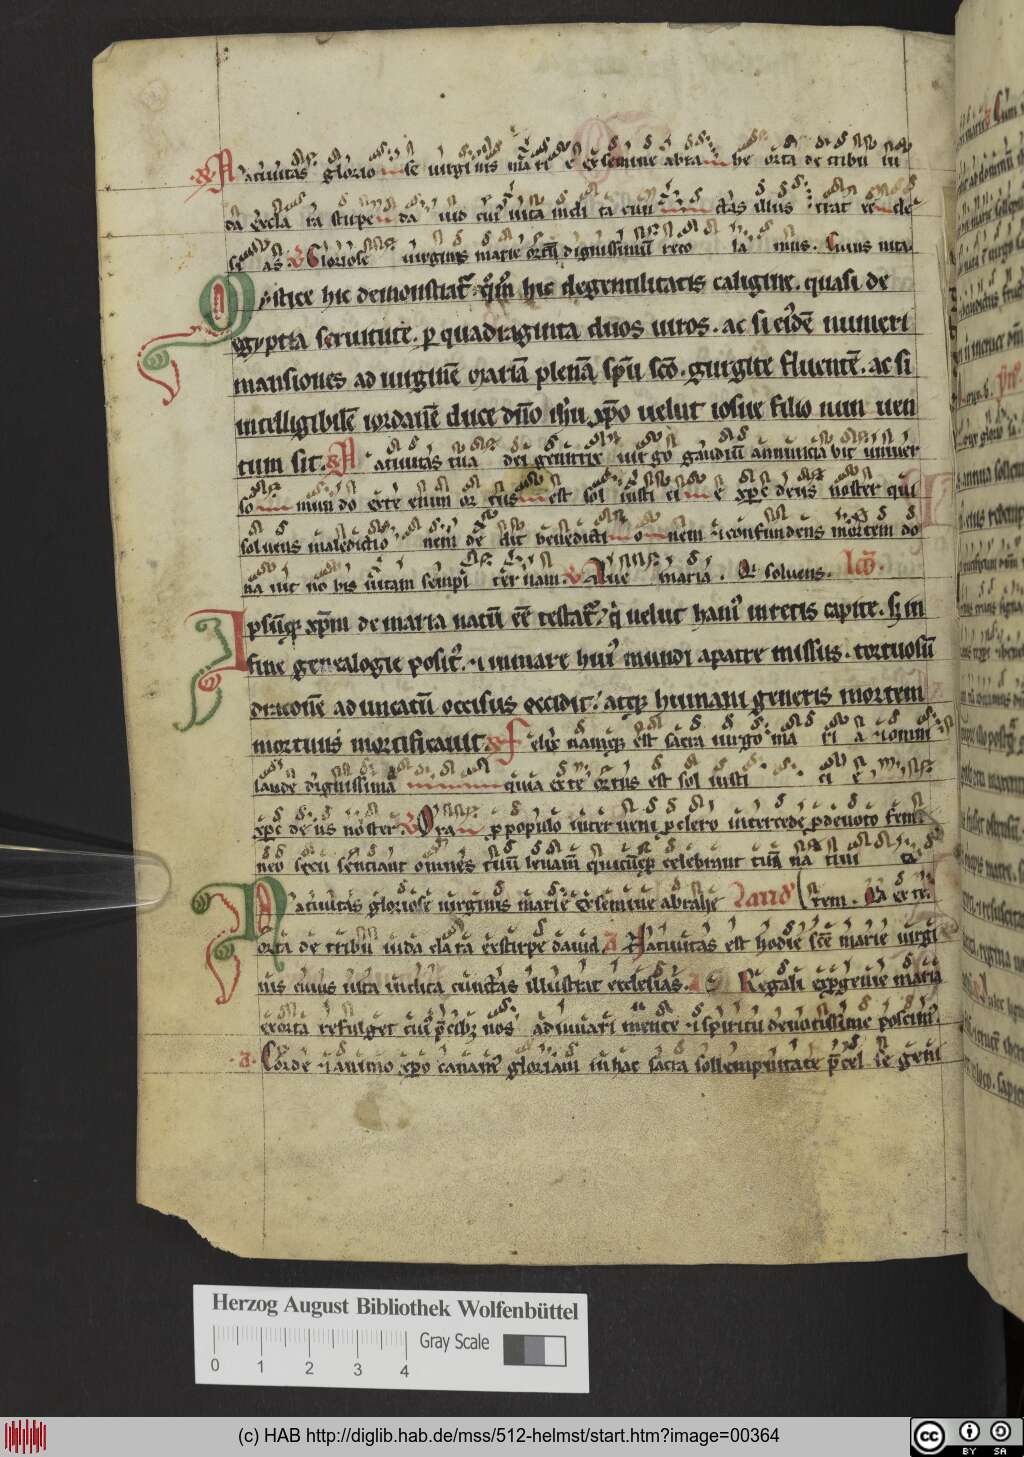 Natiuitas glorio se uirginis ma ri e ex semine abra he orta de tribu iu
da excla ra stirpe da uid cui' uita incli ta cun ctas illus trat eccle
si as. V Gloriose uirginis marie ortū dignissimū reco la mus. Cuius uita.
Mystice hic demonstrat'. qm̄ hic de gentilitatis caligine. quasi de
egyptia seruitute. ꝑ quadraginta duos uiros. ac si eide numeri
mansiones ad uirginē mariā plenā spū sc̄o. gurgite fluentē. ac si
intelligibilē iordanē duce dn̄o ihu xpo uelut iosue filio nun uen
tum sit. R Natiuitas tua dei genitrix uir go gaudiū annuncia uit uniuer
so mun do ex te enim or tus est sol iusti ci e xpc deus noster qui
soluens maledictio nem de dit benedicti o nem ⁊ confundens mortem do
na uit no bis uitam sempi ter nam V Aue maria. Qi soluens. lc̄o.
Ipsūq xpm de maria natū eē testat' qi uelut hani' inretis capite. sj in
fine genealogie posit'. ⁊ iuuare hui' mundi a patre missus. tortuosū
draconē aduncatū occisus occidit. atq humani generis mortem
mortuus mortificauit R Felix namq est sacra uirgo ma ri a ⁊ omni
laude dignissima quia ex te ortus est sol iusti ci e
xpc deus noster. V Ora ꝓ populo interueni ꝓ clero intercede ꝓ deuoto femi
neo sexu sentiant omnes tuū leuam quicūq celebrant tuā na tiui ta
Natiuitas gloriose uirginis marie ex semine abrahe Laud' tem. Qa ex te.
orta de tribu iuda clara ex stirpe dauid. a Natiuitas est hodie sc̄e marie uirgi
nis cuius uita inclita cunctas illustrat ecclesias. a Regali ex progenie maria
exorta refulget cui' p̄cib; nos adiuuari mente ⁊ spiritu deuotissime poscim'.
a. Corde ⁊ animo xpo canam' gloriam in hac sacra sollempnitate p̄cel se geni
Herzog August Bibliothek Wolfenbüttel
Gray Scale
0 1 2 3 4
(c) HAB http://diglib.hab.de/mss/512-helmst/start.htm?image=00364
cc BY SA